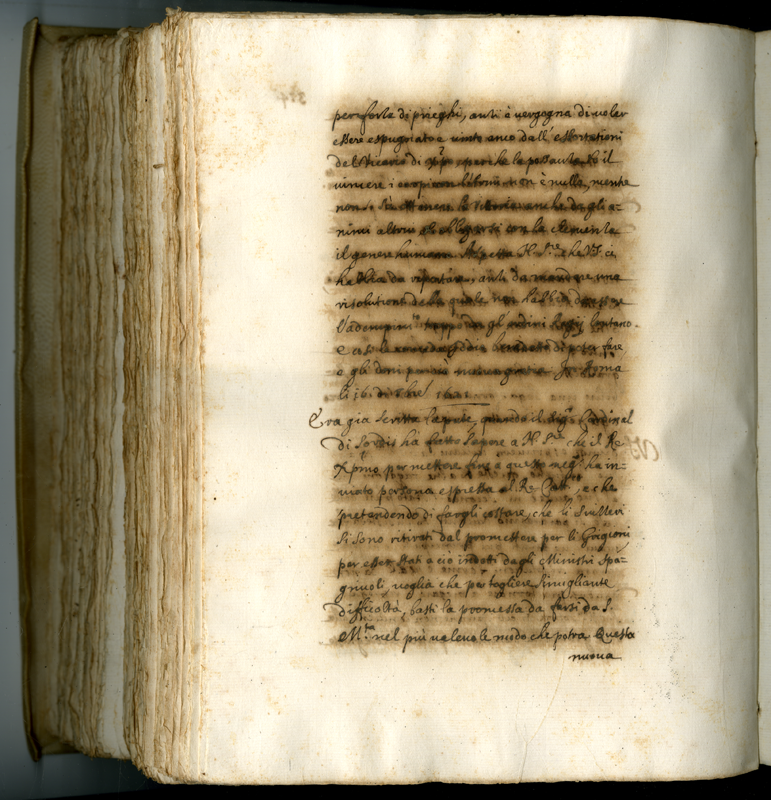 per forza di prieghi, anzi è vergogna di voler
essere espugnato e vinto anco dall' essortationi
del Vicario di Xpo, perche la possanza, et il
vincere non è nulla, mentre
non si sà ottenere la vittoria anche dagli a-
nimi altrui, et obligarsi con la clemenza
il genere humano. Aspetta N. Sre che VS. ci
habbia da riportare, anzi da mandare una
risolutione della quale non habbia da essere
l'adempimto troppo da gl' ordini Regij lontano.
E così le di poter fare
e gli doni la sua gratia. Di Roma
li 16. di 1621
Era gia scritta la pnte, quando il Sigr Cardinal
di Sordis hà fatto sapere a N. Sre che il Re
Xpmo per mettere fine a questo neg.o ha in-
viato persona espressa al Re Catt.co, e che
pretendendo di fargli constare, che li Svizzeri
si sono ritirati dal promettere per li Grigioni
per esser stati a ciò indotti dagli Ministri Spa-
gnuoli, voglia che per togliere simigliante
difficoltà, basti la promessa da farsi da S.
M.tà nel più valevole modo che potrà. Questa
nuova